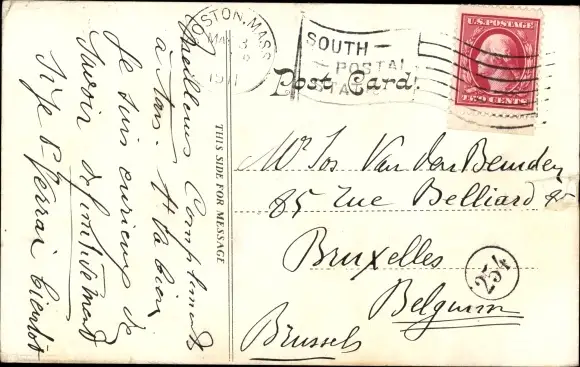 BOSTON, MASS.
MAR 3
1911
SOUTH
POSTAL
STATION
U.S. POSTAGE
TWO CENTS
Post Card.
THIS SIDE FOR MESSAGE
Meilleurs Compliments
à tous. H va bien
Je suis curieux de
savoir definitivement
si je verrai bientot
Mr. Jos Van den Bemden
85 rue Belliard
Bruxelles
Belgium
Brussels
254